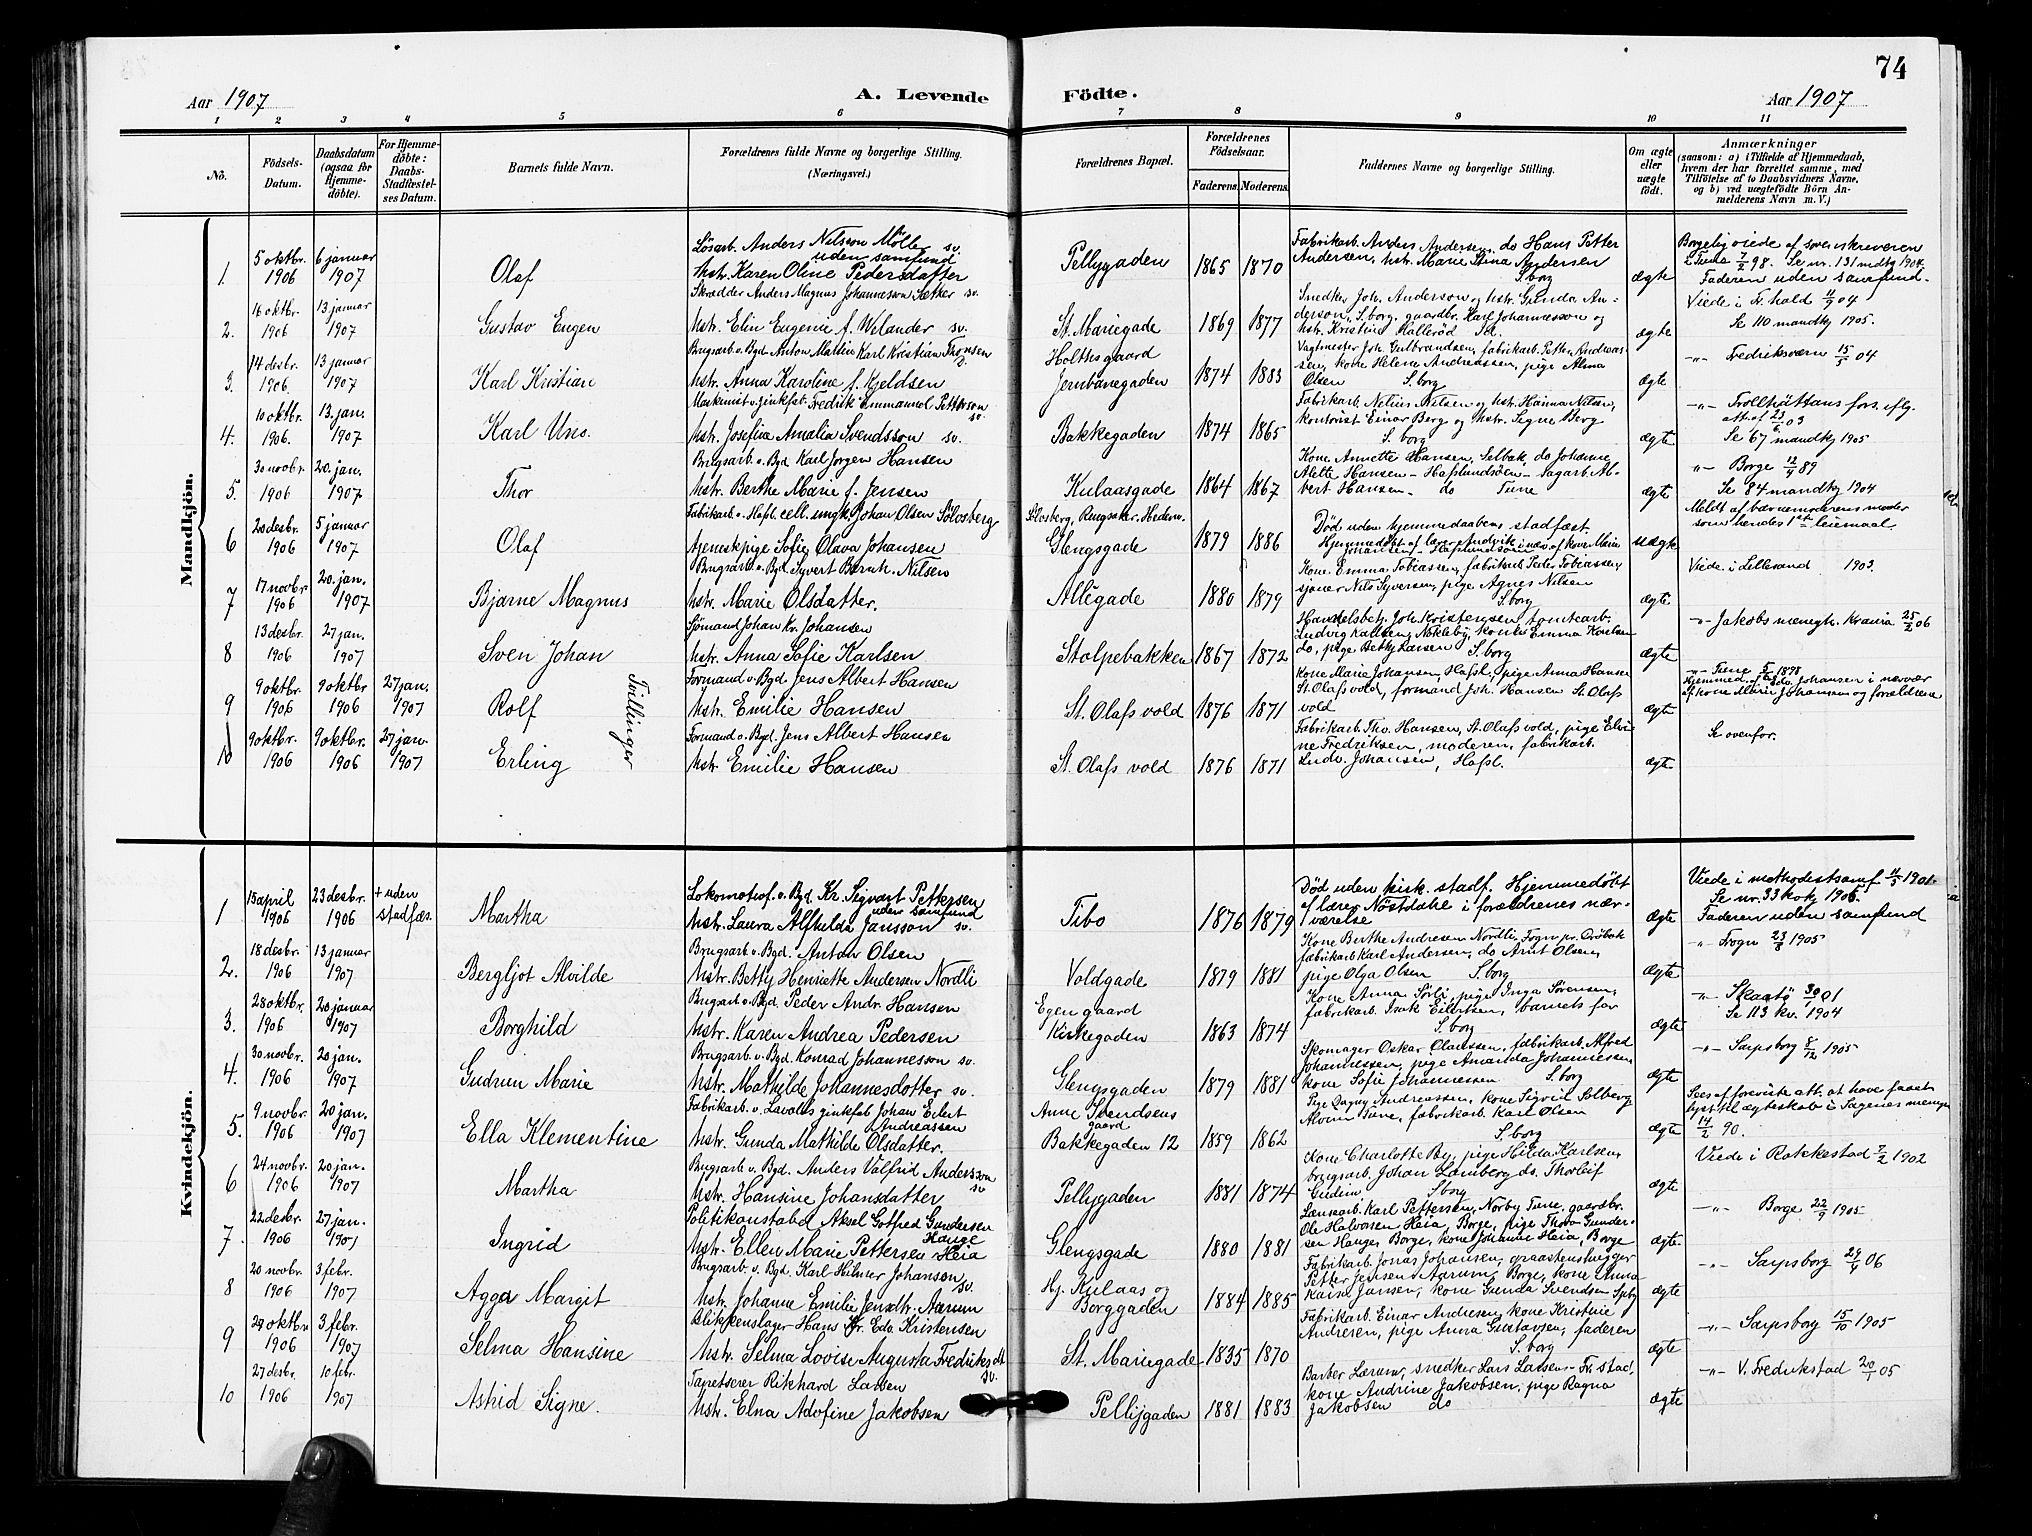 74
Aar 1907
A. Levende Födte.
Aar 1907
1 2 3 4 5 6 7 8 9 10 11
No.
Födsels-Datum.
Daabsdatum (ogsaa for Hjemme-döbte).
For Hjemme-döbte: Daabs-Stadfæstel-ses Datum.
Barnets fulde Navn.
Forældrenes fulde Navne og borgerlige Stilling.
(Næringsvei.)
Forældrenes Bopæl.
Forældrenes Födselsaar.
Faderens. Moderens.
Faddernes Navne og borgerlige Stilling.
Om ægte eller uægte födt.
Anmærkninger
(saasom: a) i Tilfælde af Hjemmedaab, hvem der har forrettet samme, med Tilföielse af to Daabsvidners Navne, og b) ved uægtefödte Börn Anmelderens Navn m. V.)
Mandkjön.
1. 5 oktbr. 1906 6 januar 1907 Olaf
Lösarb. Anders Nilsson Möller sv. uden samfund
Hstr. Karen Oline Pedersdatter
Pellygaden 1865 1870
Fabrikarb. Anders Andersen, do Hans Petter
Andersen, hstr. Marie Stina Andersen
S.borg
ægte
Borgerlig viede af sorenskriveren
i Tune 7/2 98. Se nr. 131 mdtkj 1904.
Faderen uden samfund.
2. 16 oktbr. 1906 13 januar 1907 Gustav Eugen
Skrædder Anders Magnus Johannesson Sætker sv.
Hstr. Elin Eugenie f. Welander sv.
St. Mariegade 1869 1877
Snedker Joh. Anderson og hstr. Gunda An-
derson, S.borg, gaardbr. Karl Johannesson og
hstr. Kristine Hallerød Id.
ægte
Viede i Fr.hald 11/9 04
Se 110 mandkj 1905.
3. 14 desbr. 1906. 13 januar 1907 Karl Kristian
Brugsarb. v. Bgd Anton Martin Karl Kristian Thorsen
Hstr. Anna Karoline f. Kjeldsen
Holthsgaard
Jernbanegaden 1874 1883
Vagtmester Joh. Gulbrandsen, fabrikarb. Petter Andreas-
sen, kone Helene Andreassen, pige Alma
Olsen S.borg
ægte
-"- Fredriksværn 15/5 04
4. 10 oktbr. 1906. 13. jan. 1907 Karl Uno.
Maskinist v. zinkfab. Fredrik Emmanuel Petterson sv.
Hstr. Josefina Amalia Svendsson sv.
Bakkegaden 1874 1865
Fabrikarb. Nelius Nilsen og hstr. Haima Nilsen,
kontorist Einar Berg og hstr. Signe Berg
S.borg
ægte
-"- Trollhättans fors. eflg.
att. af 23/6 03
Se 67 mandkj 1905
5. 30 novbr. 1906 20. jan. 1907 Thor
Brugsarb. v. Bgd Karl Jörgen Hansen
Hstr. Berthe Marie f. Jensen
Kulaasgade 1864 1867
Kone Annette Hansen, Selbak, do Johanne
Alette Hansen - Haslundsöen - sagarb. Al-
bert Hansen - do Tune
ægte
-"- Borge 12/4 89
Se 84 mandkj 1904
6 20 desbr. 1906 5 januar 1907 Olaf
Fabrikarb. v. Hafsl. cell. ungk. Johan Olsen Sölvsberg
Tjenestepige Sofie Olava Johansen
Sölvsberg, Ringsaker, Hedem.
Glengsgade 1879 1886
Död uden hjemmedaabens stadfæst.
Hjemmedöbt af lærer Andvik i nærv. af kone Maria
Johansen - Haslundsöen
uægte
Meldt af barnemoderens moder
som hendes 1st leiemaal
7 17 novbr 1906 20. jan. 1907 Bjarne Magnus
Brugsarb. v. Bgd. Syvert Bernh. Nilsen
Hstr. Marie Olsdatter.
Allégade 1880 1879
Kone Emma Tobiassen, fabrikarb. Peder Tobiassen,
sjöner Nils Syversen, pige Agnes Nilsen
S.borg
ægte
Viede i Lillesand 1903.
8 13 desbr. 1906 27 jan. 1907 Sven Johan
Sjömand Johan Kr. Johansen
Hstr. Anna Sofie Karlsen
Stolpebakken 1867 1872
Handelsbetj. Joh. Kristensen, tomtearb.
Ludvig Karlsen, Nökleby, kone Emma Karlsen
do, pige Betty Larsen S.borg
ægte
-"- Jakobs menigh. Krania 25/2 06
9 9 oktbr. 1906 9 oktbr 1906 27 jan. 1907 Rolf Tvillinger
Formand v. Bgd. Jens Albert Hansen
Hstr. Emilie Hansen
St. Olafs vold 1876 1871
Kone Marie Johansen, Hafsl., pige Anna Hansen
St. Olafs vold, formand Joh. Hansen St. Olafs
vold
ægte
-"- Tune 5/ 1898
Hjemmed. af Edv. Johansen i nærvær
af kone Marie Johansen og forældrene
10 9 oktbr. 1906 9 oktbr. 1906 27 jan. 1907 Erling
Formand v. Bgd. Jens Albert Hansen
Hstr. Emilie Hansen
St. Olafs vold 1876 1871
Fabrikarb. Th. Hansen, St. Olafs vold, pige Elvi-
ne Fredriksen, moderen, fabrikarb.
Ludv. Johansen, Hafsl.
ægte
Se ovenfor.
Kvindekjön.
1 15 april 1906 23 desbr. 1906 + uden stadfæs. Martha
Lokomotivf. v. Bgd. Kr. Sigvart Pettersen uden samfund
Hstr. Laura Alfhilda Jansson sv.
Tibo 1876 1879
Död uden kirk. stadf. Hjemmedöbt
af lærer Nöstdahl i forældrenes nær-
værelse
ægte
Viede i methodistsamf 11/5 1901.
Se nr. 33 kvkj 1905.
Faderen uden samfund
2. 18 desbr. 1906 13 januar 1907 Bergljot Alvilde
Brugsarb v. Bgd. Anton Olsen
Hstr. Betty Henriette Andersen Nordli
Voldgade 1879 1881
Kone Berthe Andresen Nordli, Frogn pr. Dröbak
fabrikarb Karl Andersen, do Arnt Olsen,
pige Olga Olsen S.borg
ægte
-"- Frogn 23/ 1905
3. 28 oktbr. 1906 20 januar 1907 Borghild
Brugsarb v. Bgd. Peder Andr. Hansen
Hstr. Karen Andrea Pedersen
Egen gaard
Kirkegaden 1863 1874
Kone Anna Sörli, pige Inga Sörensen,
fabrikarb. Isak Eilertsen, barnets far
S.borg
ægte
-"- Skaatö 30/ 01
Se 113 kv. 1904
4. 30 novbr. 1906 20 jan. 1907 Gudrun Marie
Brugsarb v. Bgd. Konrad Johannesson sv.
Hstr. Mathilde Johannesdotter sv.
Glengsgaden 1879 1881
Skomager Oskar Olaussen, fabrikarb. Alfred
Johannessen, pige Amanda Johannessen
kone Sofie Johannessen S.borg
ægte
-"- Sarpsborg 8/12 1905
5. 9 novbr. 1906 20 jan. 1907 Ella Klementine
Fabrikarb v. Lavolds zinkfab Johan Eilert Andreassen
Hstr. Gunda Mathilde Olsdatter.
Anne Svendsens gaard
Bakkegaden 12 1859 1862
Pige Dagny Andreassen, kone Sigveil Solberg
Alvim Tune, fabrikarb. Karl Olsen
S.borg
ægte
Sees af foreviste att. at have faaet
lyst til ægteskab i Sagenes menigh
14/2 90.
6 24 novbr. 1906 20 jan. 1907 Martha
Brugsarb v. Bgd. Anders Valfrid Andersson sv
Hstr. Hansine Johansdatter
Pellygaden 1881 1874
Kone Charlotte By, pige Hilda Karlsen,
brugsarb. Johan Lamberg, do. Thorleif
Gudim S.borg
ægte
Viede i Rakkestad 7/2 1902
7. 22 desbr. 1906 27 jan. 1907 Ingrid
Politikonstabel Aksel Gotfred Gundersen Hauge
Hstr. Ellen Marie Pettersen Heia
Glengsgade 1880 1881
Lænsearb. Karl Pettersen, Norby Tune, gaardbr.
Ole Halvorsen Heia, Borge, pige Thora Gunder-
sen Hauge, Borge, kone Johanne Heia, Borge
ægte
-"- Borge 22/9 1905
8 20 novbr. 1906 3 febr. 1907 Agga Margit
Brugsarb. v. Bgd. Karl Hilmer Johanson sv.
Hstr. Johanne Emilie Jensdtr. Aarum
Hj. Kulaas og
Borggaden 1884 1885
Fabrikarb. Jonas Johansen, graastenshugger
Petter Jensen Aarum, Borge, kone Anna
Kaisa Jansen, kone Gunda Svendsen Spbg
ægte
-"- Sarpsborg 29/4 06
9 29 oktbr 1906 3 febr. 1907 Selma Hansine
Blikkenslager Hans Kr. Edv. Kristensen
Hstr. Selma Lovise Augusta Fredriksdt sv.
St. Mariegade 1835 1870
Fabrikarb. Einar Andresen, kone Kristine
Andresen, pige Anna Gustavsen, faderen
S.borg
ægte
-"- Sarpsborg 15/10 1905
10 27 desbr. 1906 10 febr. 1907 Astrid Signe.
Tapetserer Rikhard Larsen
Hstr. Elna Adofine Jakobsen
Pellygaden 1881 1883
Barber Lærum, snedker Lars Larsen - Fr.stad,
kone Andrine Jakobsen, pige Ragna
Jakobsen do
ægte
-"- V. Fredrikstad 20/1 05